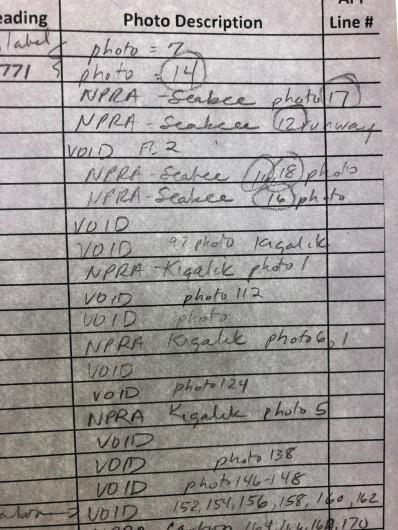 eading Photo Description Line #
label photo = 7
771 photo = 14
NPRA - Seabee photo 17
NPRA - Seabee 12 runway
VOID FL 2
NPRA - Seabee 18 photo
NPRA - Seabee 16 photo
VOID
VOID 97 photo Kigalik
NPRA - Kigalik photo 1
VOID photo 112
VOID photo
NPRA Kigalik photo 6, 1
VOID
VOID photo 124
NPRA Kigalik photo 5
VOID
VOID photo 138
VOID photo 146-148
VOID 152, 154, 156, 158, 160, 162
170